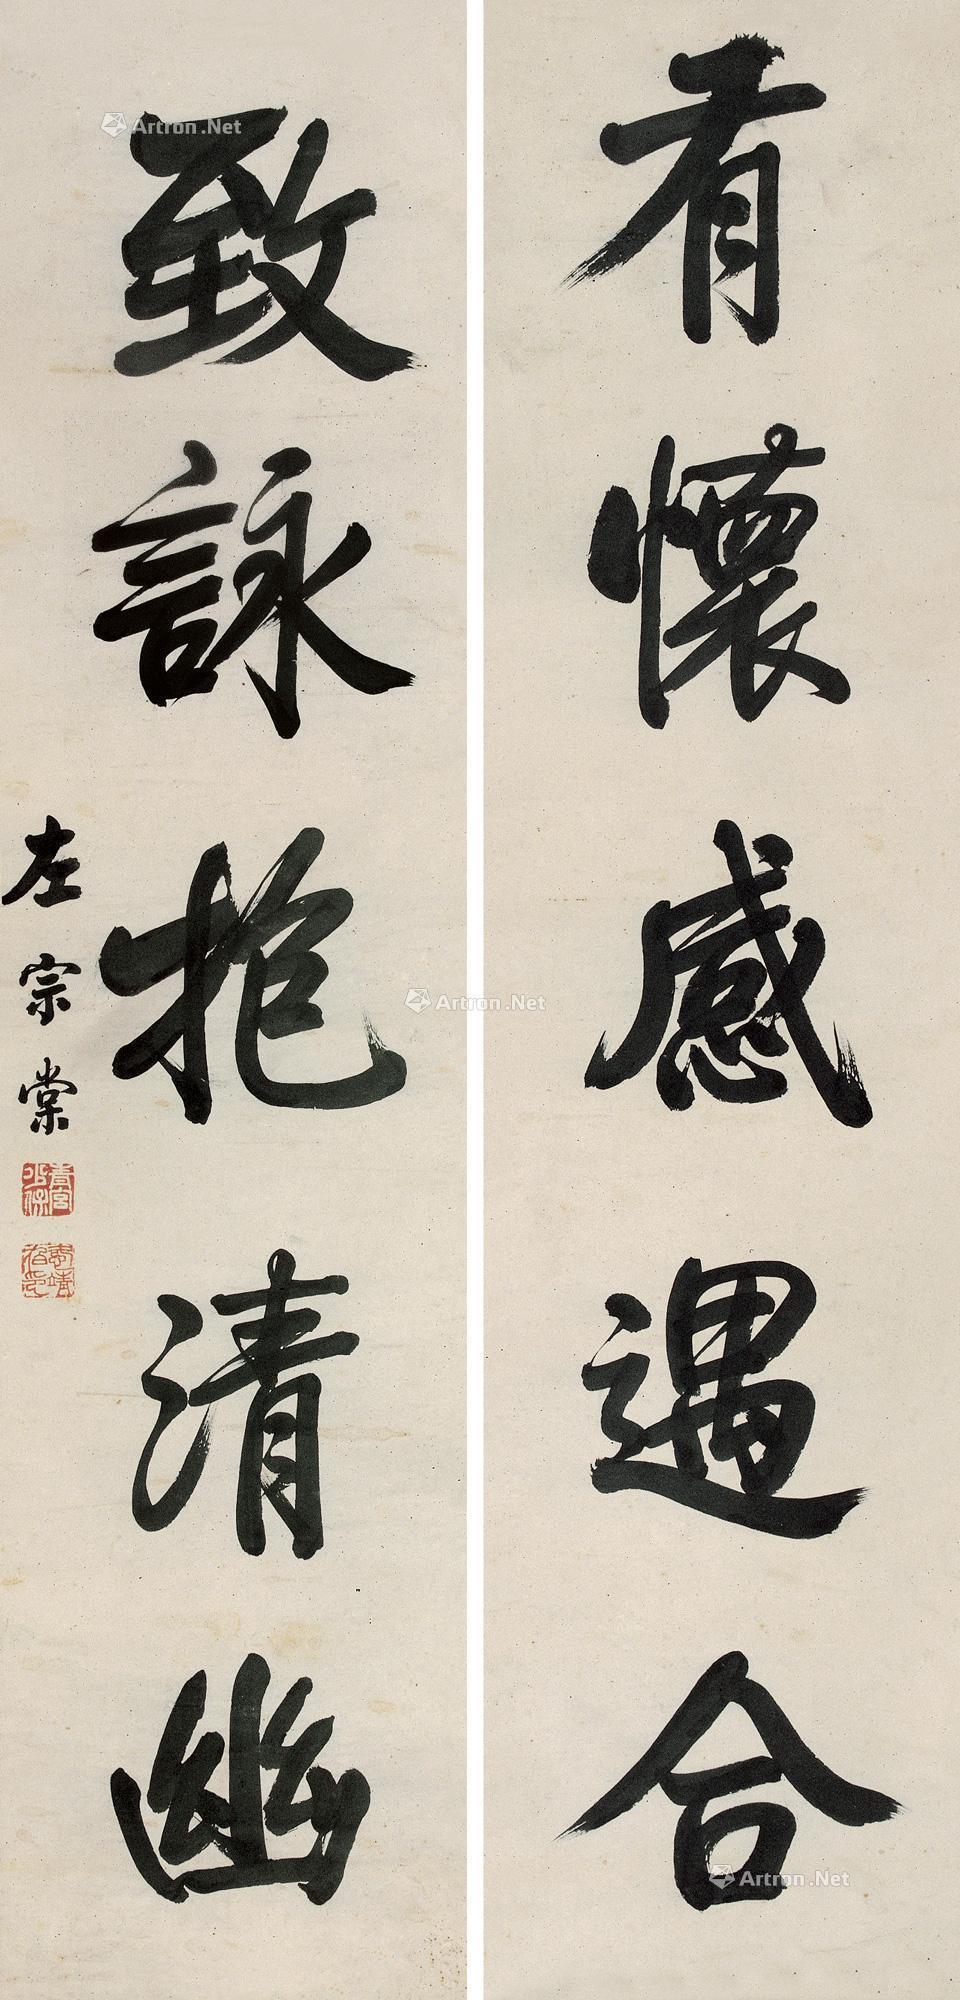 有懷感遇合
致詠抱清幽
左宗棠
青宮太保
恪靖侯章
Artron.Net
Artron.Net
Artron.Net